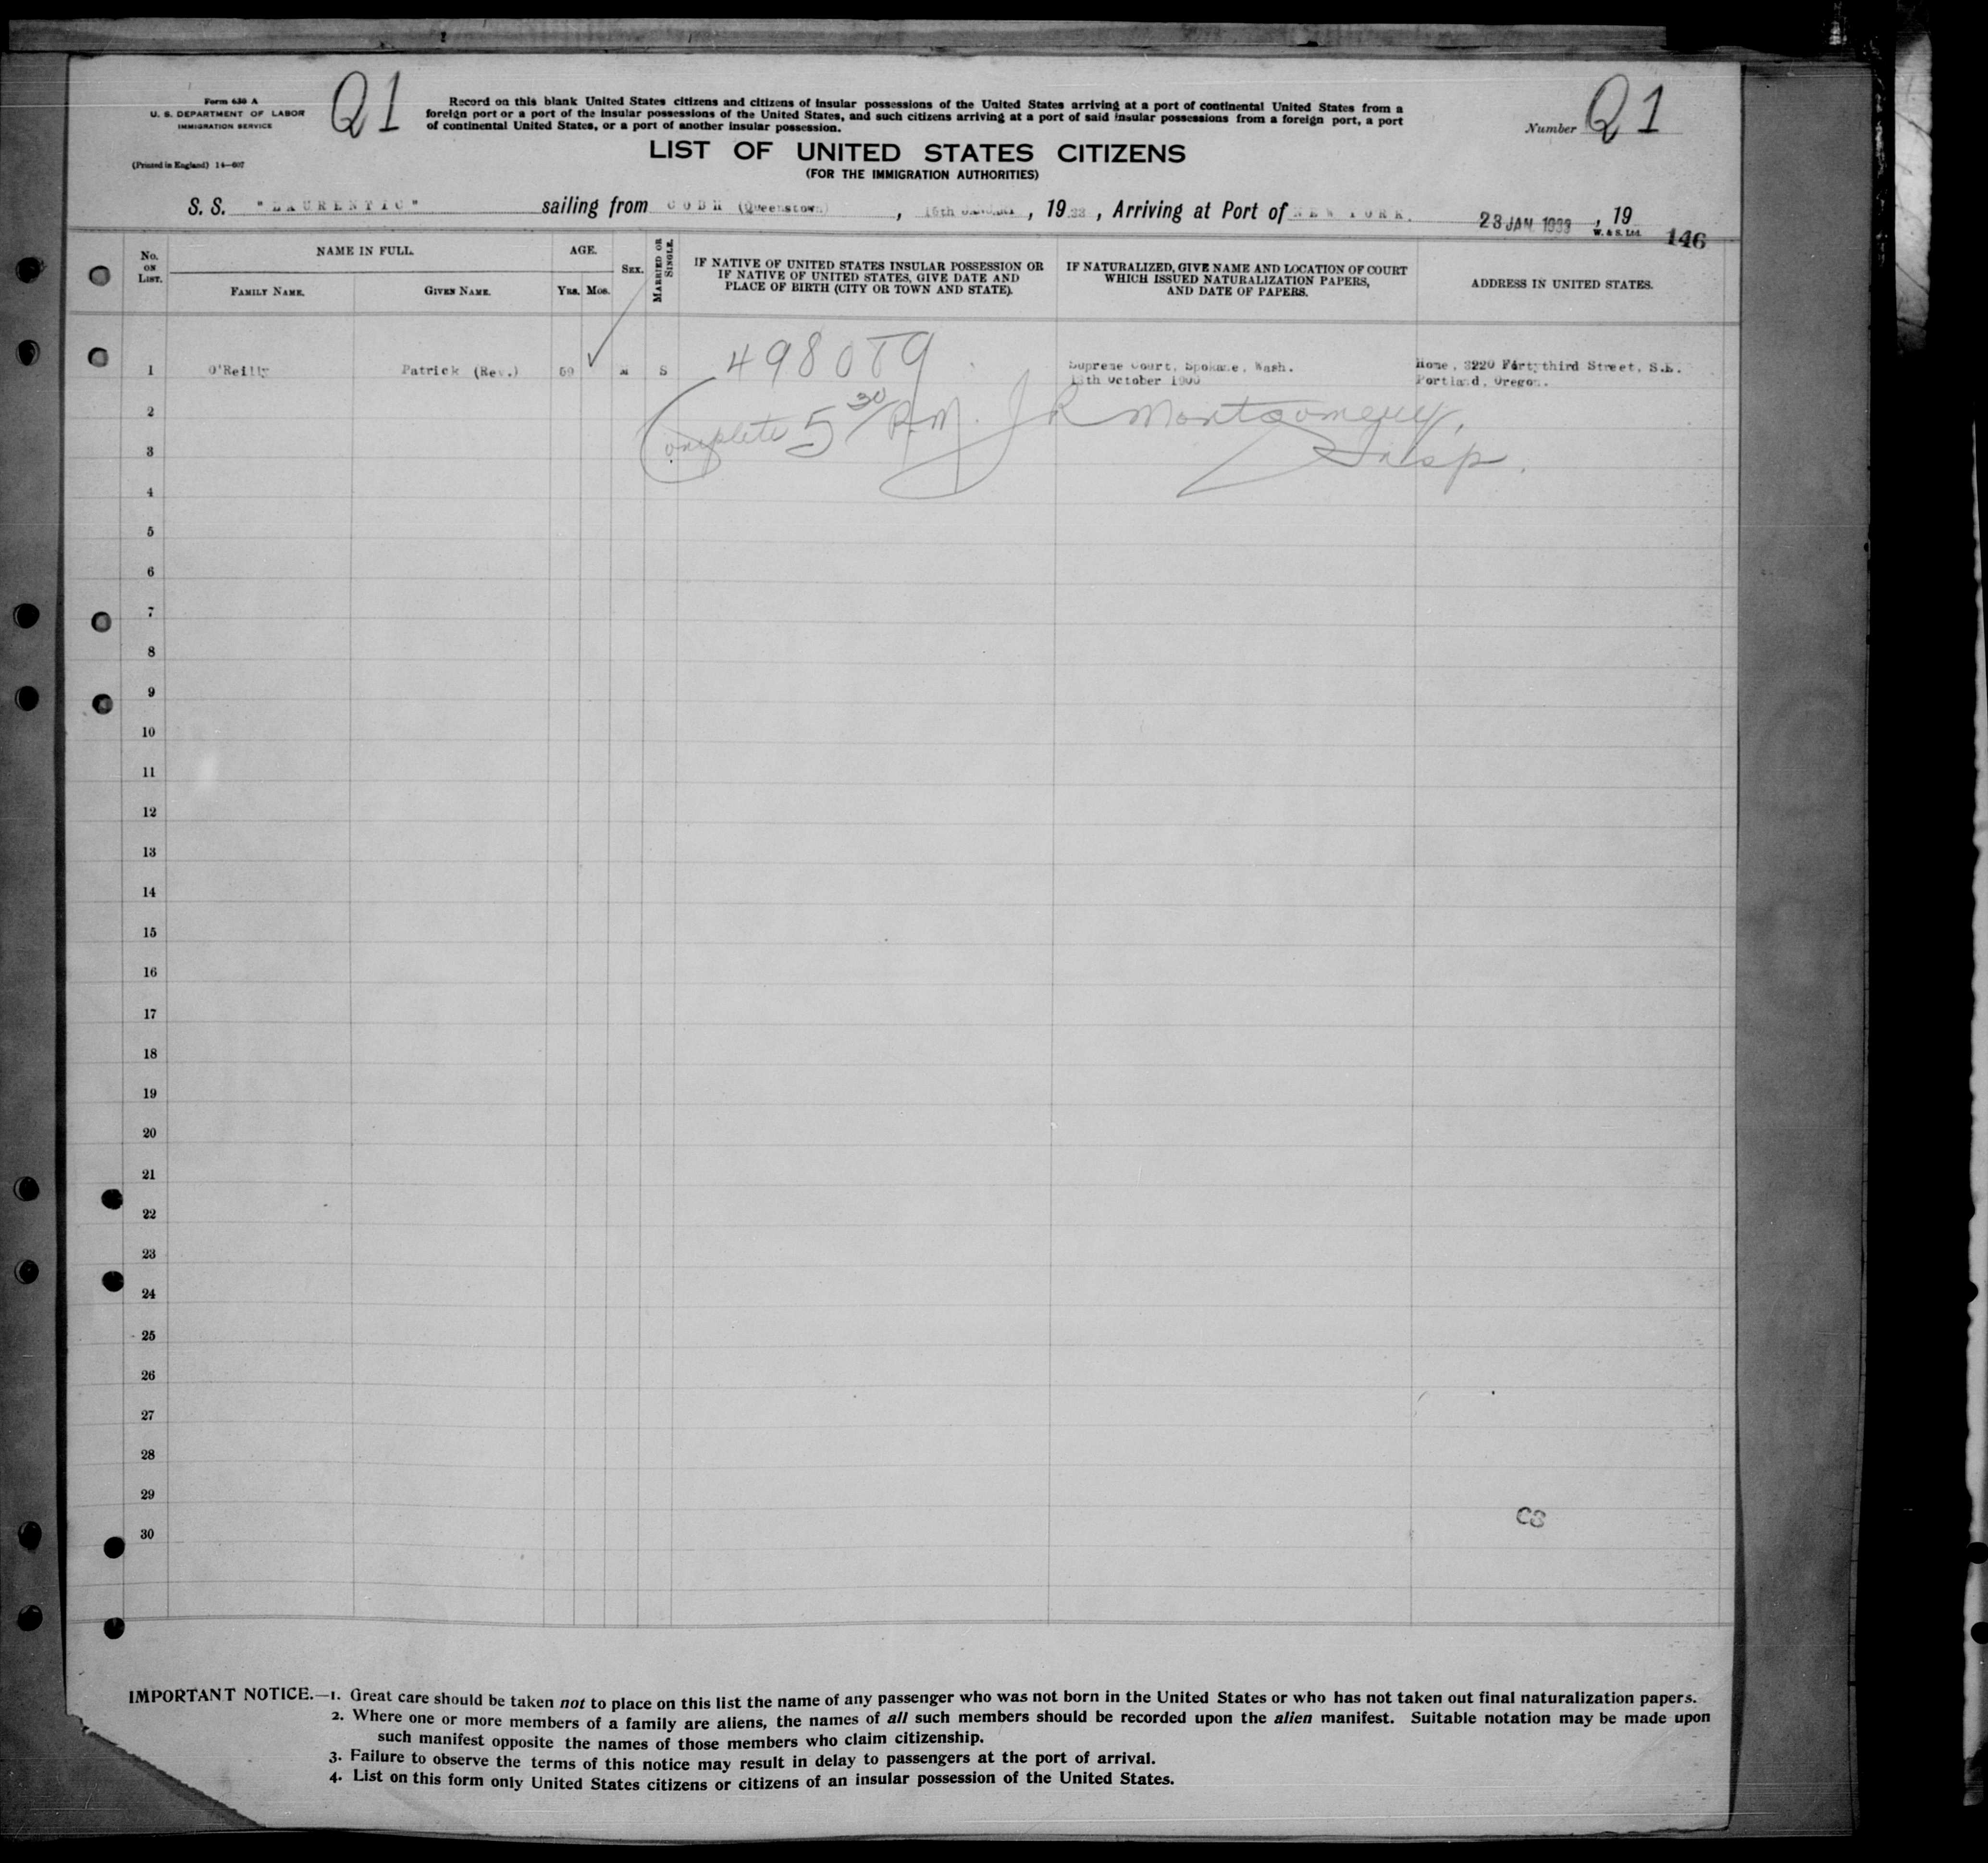 Form 630 A
U. S. DEPARTMENT OF LABOR
IMMIGRATION SERVICE
(Printed in England) 14—607
Q1
Record on this blank United States citizens and citizens of insular possessions of the United States arriving at a port of continental United States from a
foreign port or a port of the insular possessions of the United States, and such citizens arriving at a port of said insular possessions from a foreign port, a port
of continental United States, or a port of another insular possession.
Number Q1
LIST OF UNITED STATES CITIZENS
(FOR THE IMMIGRATION AUTHORITIES)
S. S. "LAURENTIC" sailing from COBH (Queenstown), 1933, Arriving at Port of NEW YORK. 23 JAN 1933, 19
W. & S. Ltd. 146
No. ON LIST.
NAME IN FULL.
FAMILY NAME.
GIVEN NAME.
AGE.
YRS. MOS.
SEX.
MARRIED OR SINGLE.
IF NATIVE OF UNITED STATES INSULAR POSSESSION OR
IF NATIVE OF UNITED STATES, GIVE DATE AND
PLACE OF BIRTH (CITY OR TOWN AND STATE).
IF NATURALIZED, GIVE NAME AND LOCATION OF COURT
WHICH ISSUED NATURALIZATION PAPERS,
AND DATE OF PAPERS.
ADDRESS IN UNITED STATES.
1 O'Reilly Patrick (Rev.) M S 4980T9 Supreme Court, Spokane, Wash. Home, 3220 Fortythird Street, S.E.
October Portland, Oregon.
2 Complete 5 30/P.M. J R Montgomery,
3 Insp.
4
5
6
7
8
9
10
11
12
13
14
15
16
17
18
19
20
21
22
23
24
25
26
27
28
29
CS
30
IMPORTANT NOTICE.—1. Great care should be taken not to place on this list the name of any passenger who was not born in the United States or who has not taken out final naturalization papers.
2. Where one or more members of a family are aliens, the names of all such members should be recorded upon the alien manifest. Suitable notation may be made upon
such manifest opposite the names of those members who claim citizenship.
3. Failure to observe the terms of this notice may result in delay to passengers at the port of arrival.
4. List on this form only United States citizens or citizens of an insular possession of the United States.